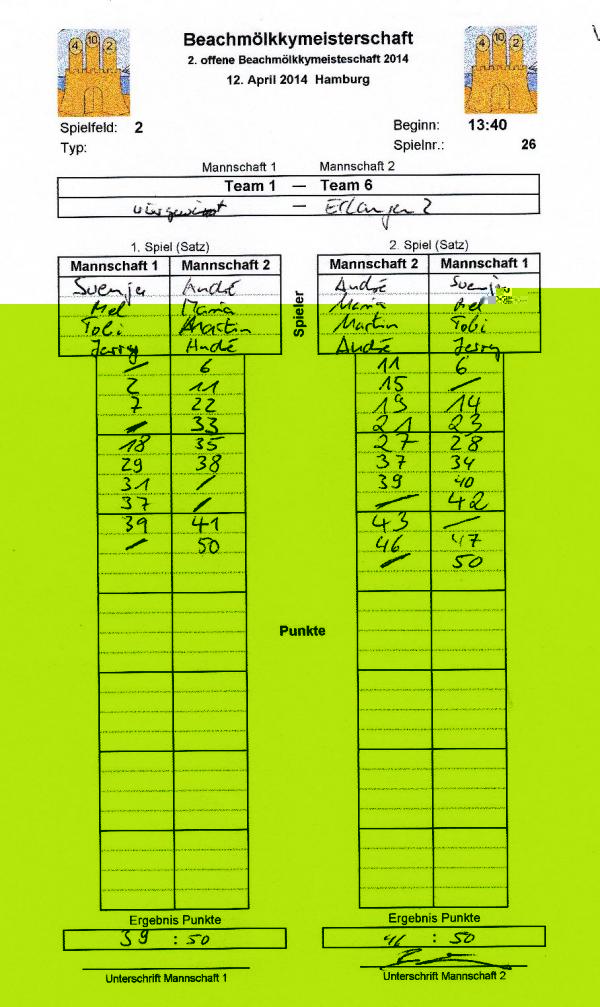 4 10 2
4 10 2
Beachmölkkymeisterschaft
2. offene Beachmölkkymeisteschaft 2014
12. April 2014 Hamburg
Spielfeld: 2
Beginn: 13:40
Typ:
Spielnr.: 26
Mannschaft 1 Mannschaft 2
Team 1 — Team 6
— Erlangen 2
1. Spiel (Satz)
Mannschaft 1 Mannschaft 2
Svenja André
Mel Maria
Tobi Martin
Jerry André
/ 6
2 11
7 22
/ 33
18 35
29 38
31 /
37 /
39 41
/ 50
Ergebnis Punkte
39 : 50
Unterschrift Mannschaft 1
Spieler
Punkte
2. Spiel (Satz)
Mannschaft 2 Mannschaft 1
André Svenja
Maria Mel
Martin Tobi
André Jerry
11 6
15 /
19 14
21 23
27 28
37 34
39 40
/ 42
43 /
46 47
/ 50
Ergebnis Punkte
46 : 50
Unterschrift Mannschaft 2